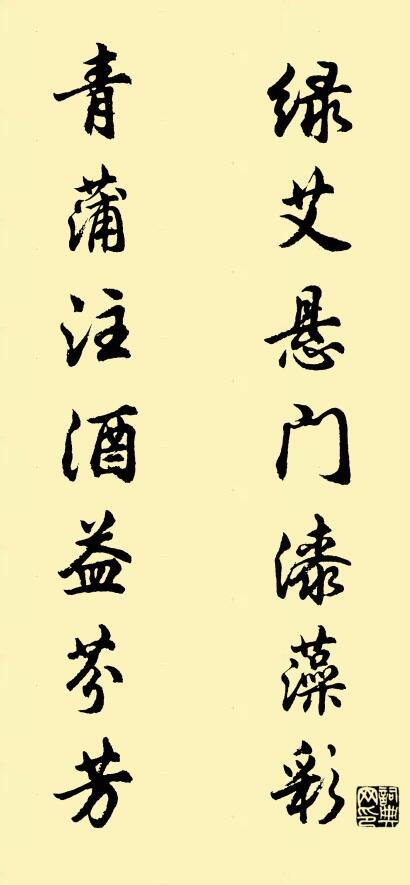 绿艾悬门漆藻彩
青蒲注酒益芬芳
詞典
网印